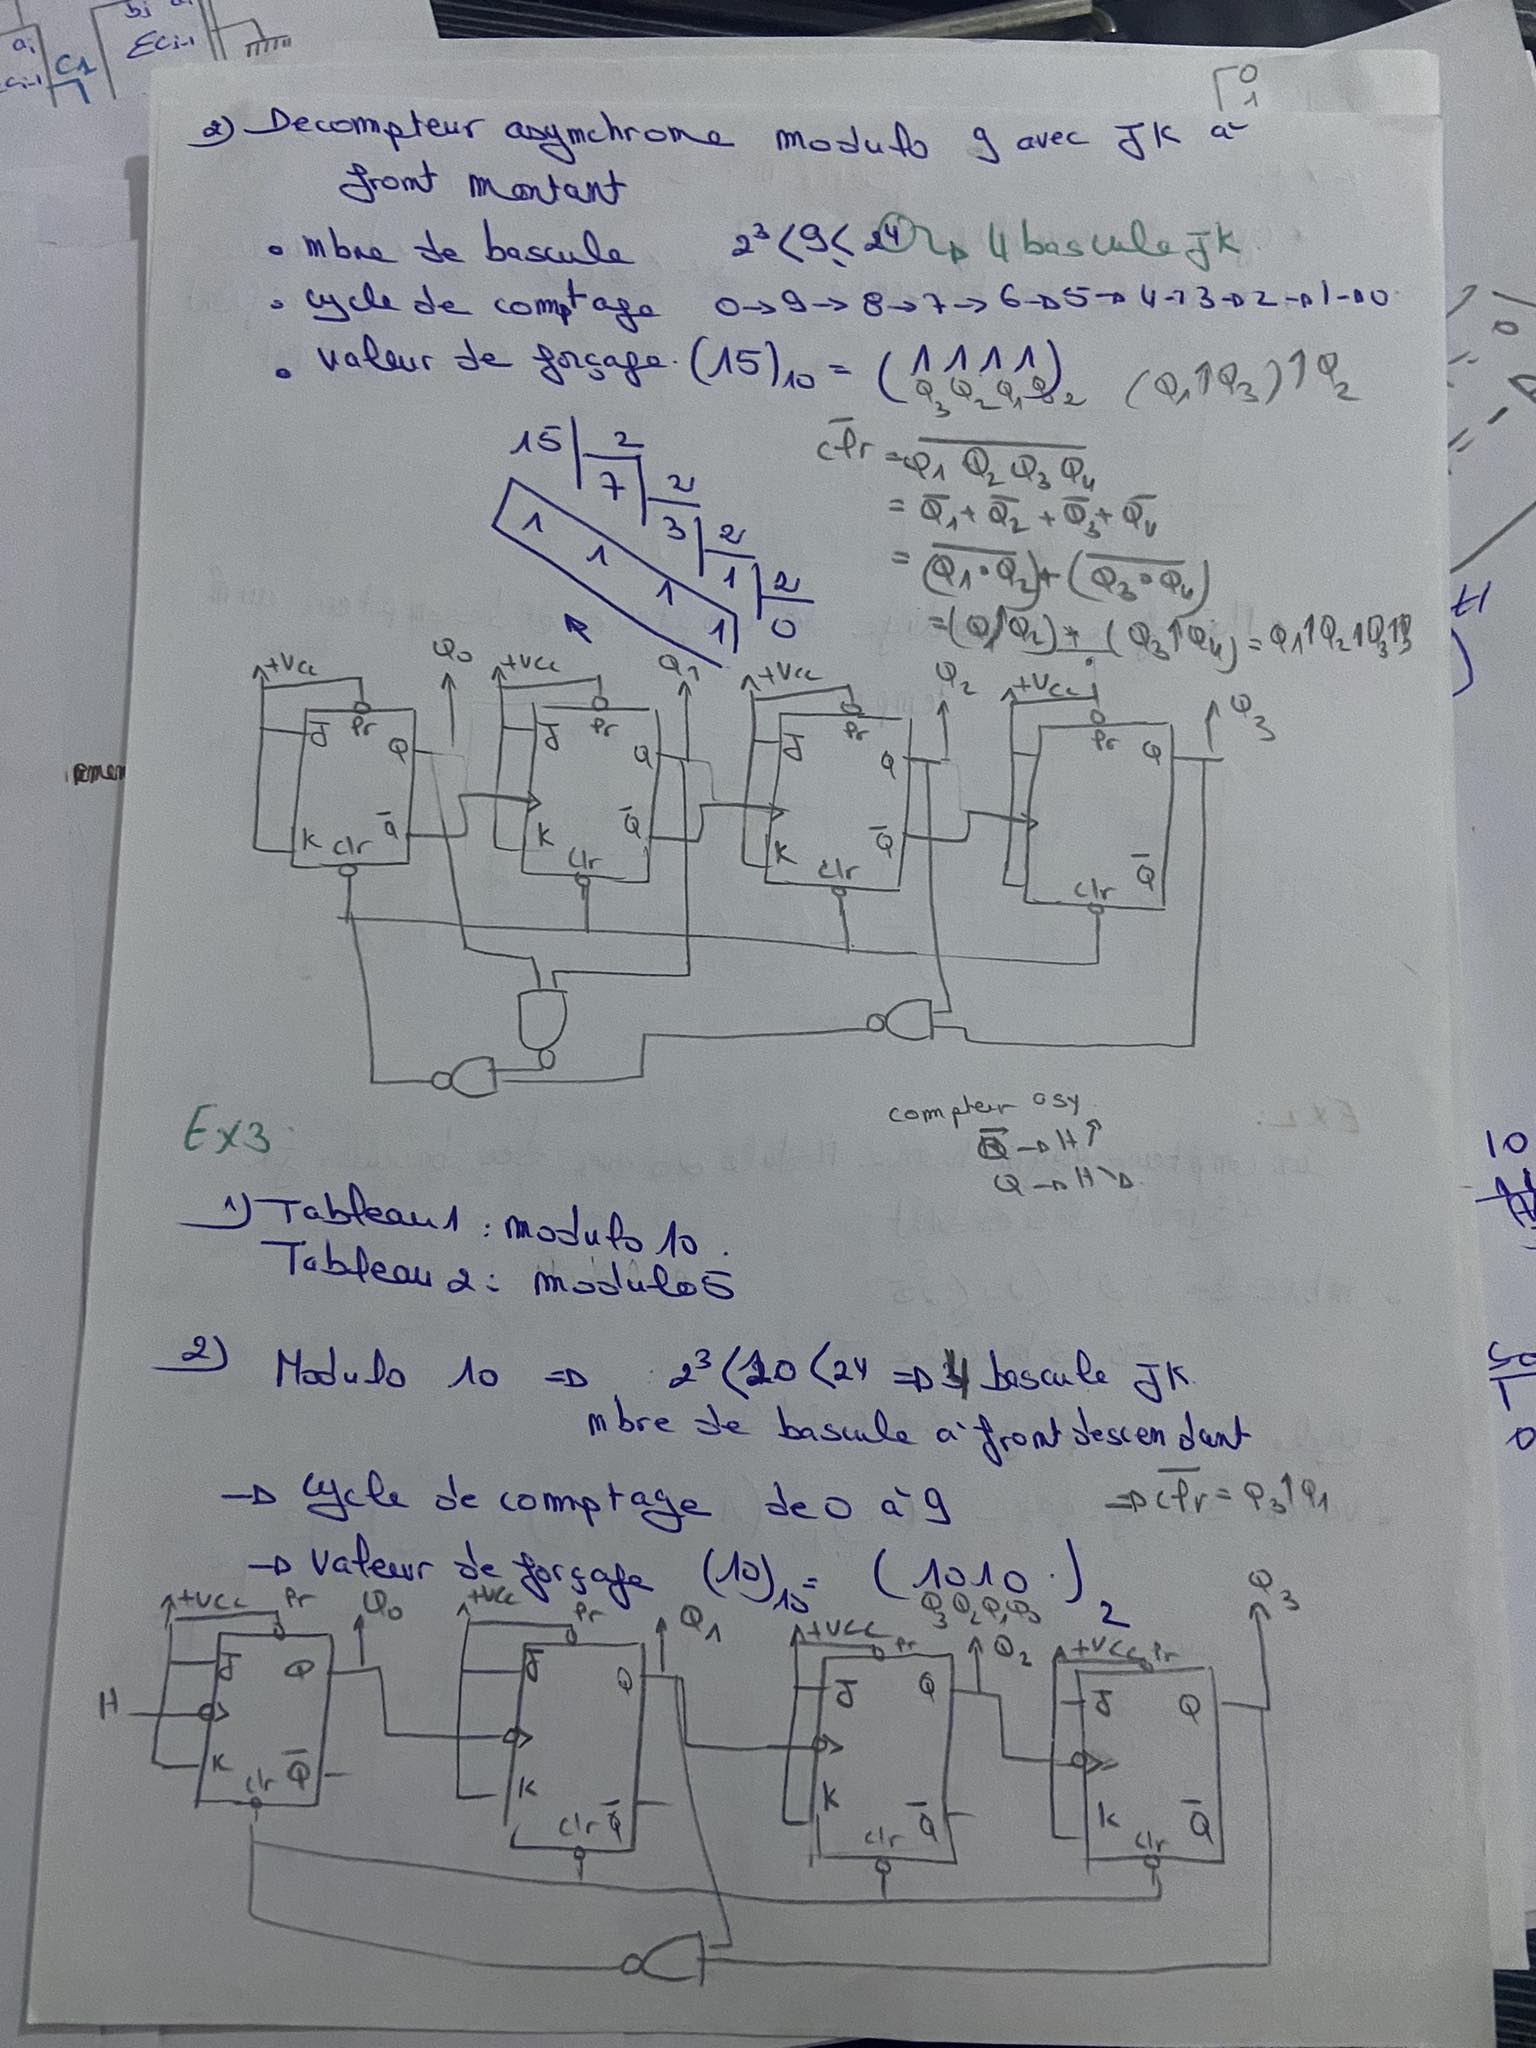 ai
bi
ci-1
C1
ECi-1
0
1
2) Decompteur asynchrome modulo 9 avec JK à
front montant
• mbre de bascule 2³<9<2⁴ → 4 bascule JK
• cycle de comptage 0→9→8→7→6→5→4→3→2→1→0
• valeur de forçage. (15)10 = (1111)2 (Q1↑Q3)↑Q2
Q3 Q2 Q1 Q0
15 2
7 2
3 2
1 2
0
1 1 1 1
C̅l̅r̅ = \overline{Q1 Q2 Q3 Q4}
= Q̅1 + Q̅2 + Q̅3 + Q̅4
= (\overline{Q1•Q2}) + (\overline{Q3•Q4})
=(Q1↑Q2)+(Q3↑Q4) = Q1↑Q2↑Q3↑
+Vcc Q0 +Vcc Q1 +Vcc Q2 +Vcc Q3
J Pr Q J Pr Q J Pr Q Pr Q
K Clr Q̅ K Clr Q̅ K Clr Q̅ Clr Q̅
Ex3
compteur asy
Q̅ → H↑
Q → H↘
1) Tableau1 : modulo 10.
Tableau 2 : modulo5
2) Modulo 10 ⇒ 2³<10<24 ⇒ 4 bascule JK
mbre de bascule à front descendant
→ cycle de comptage de 0 à 9 ⇒ C̅l̅r̅ = Q3↑Q1
→ valeur de forçage (10)10 = (1010.)2
Q3 Q2 Q1 Q0
+Vcc Pr Q0 +Vcc Pr Q1 +Vcc Pr Q2 +Vcc Pr Q3
J Q J Q J Q J Q
H
K Clr Q̅ K Clr Q̅ K Clr Q̅ K Clr Q̅
H
10
0